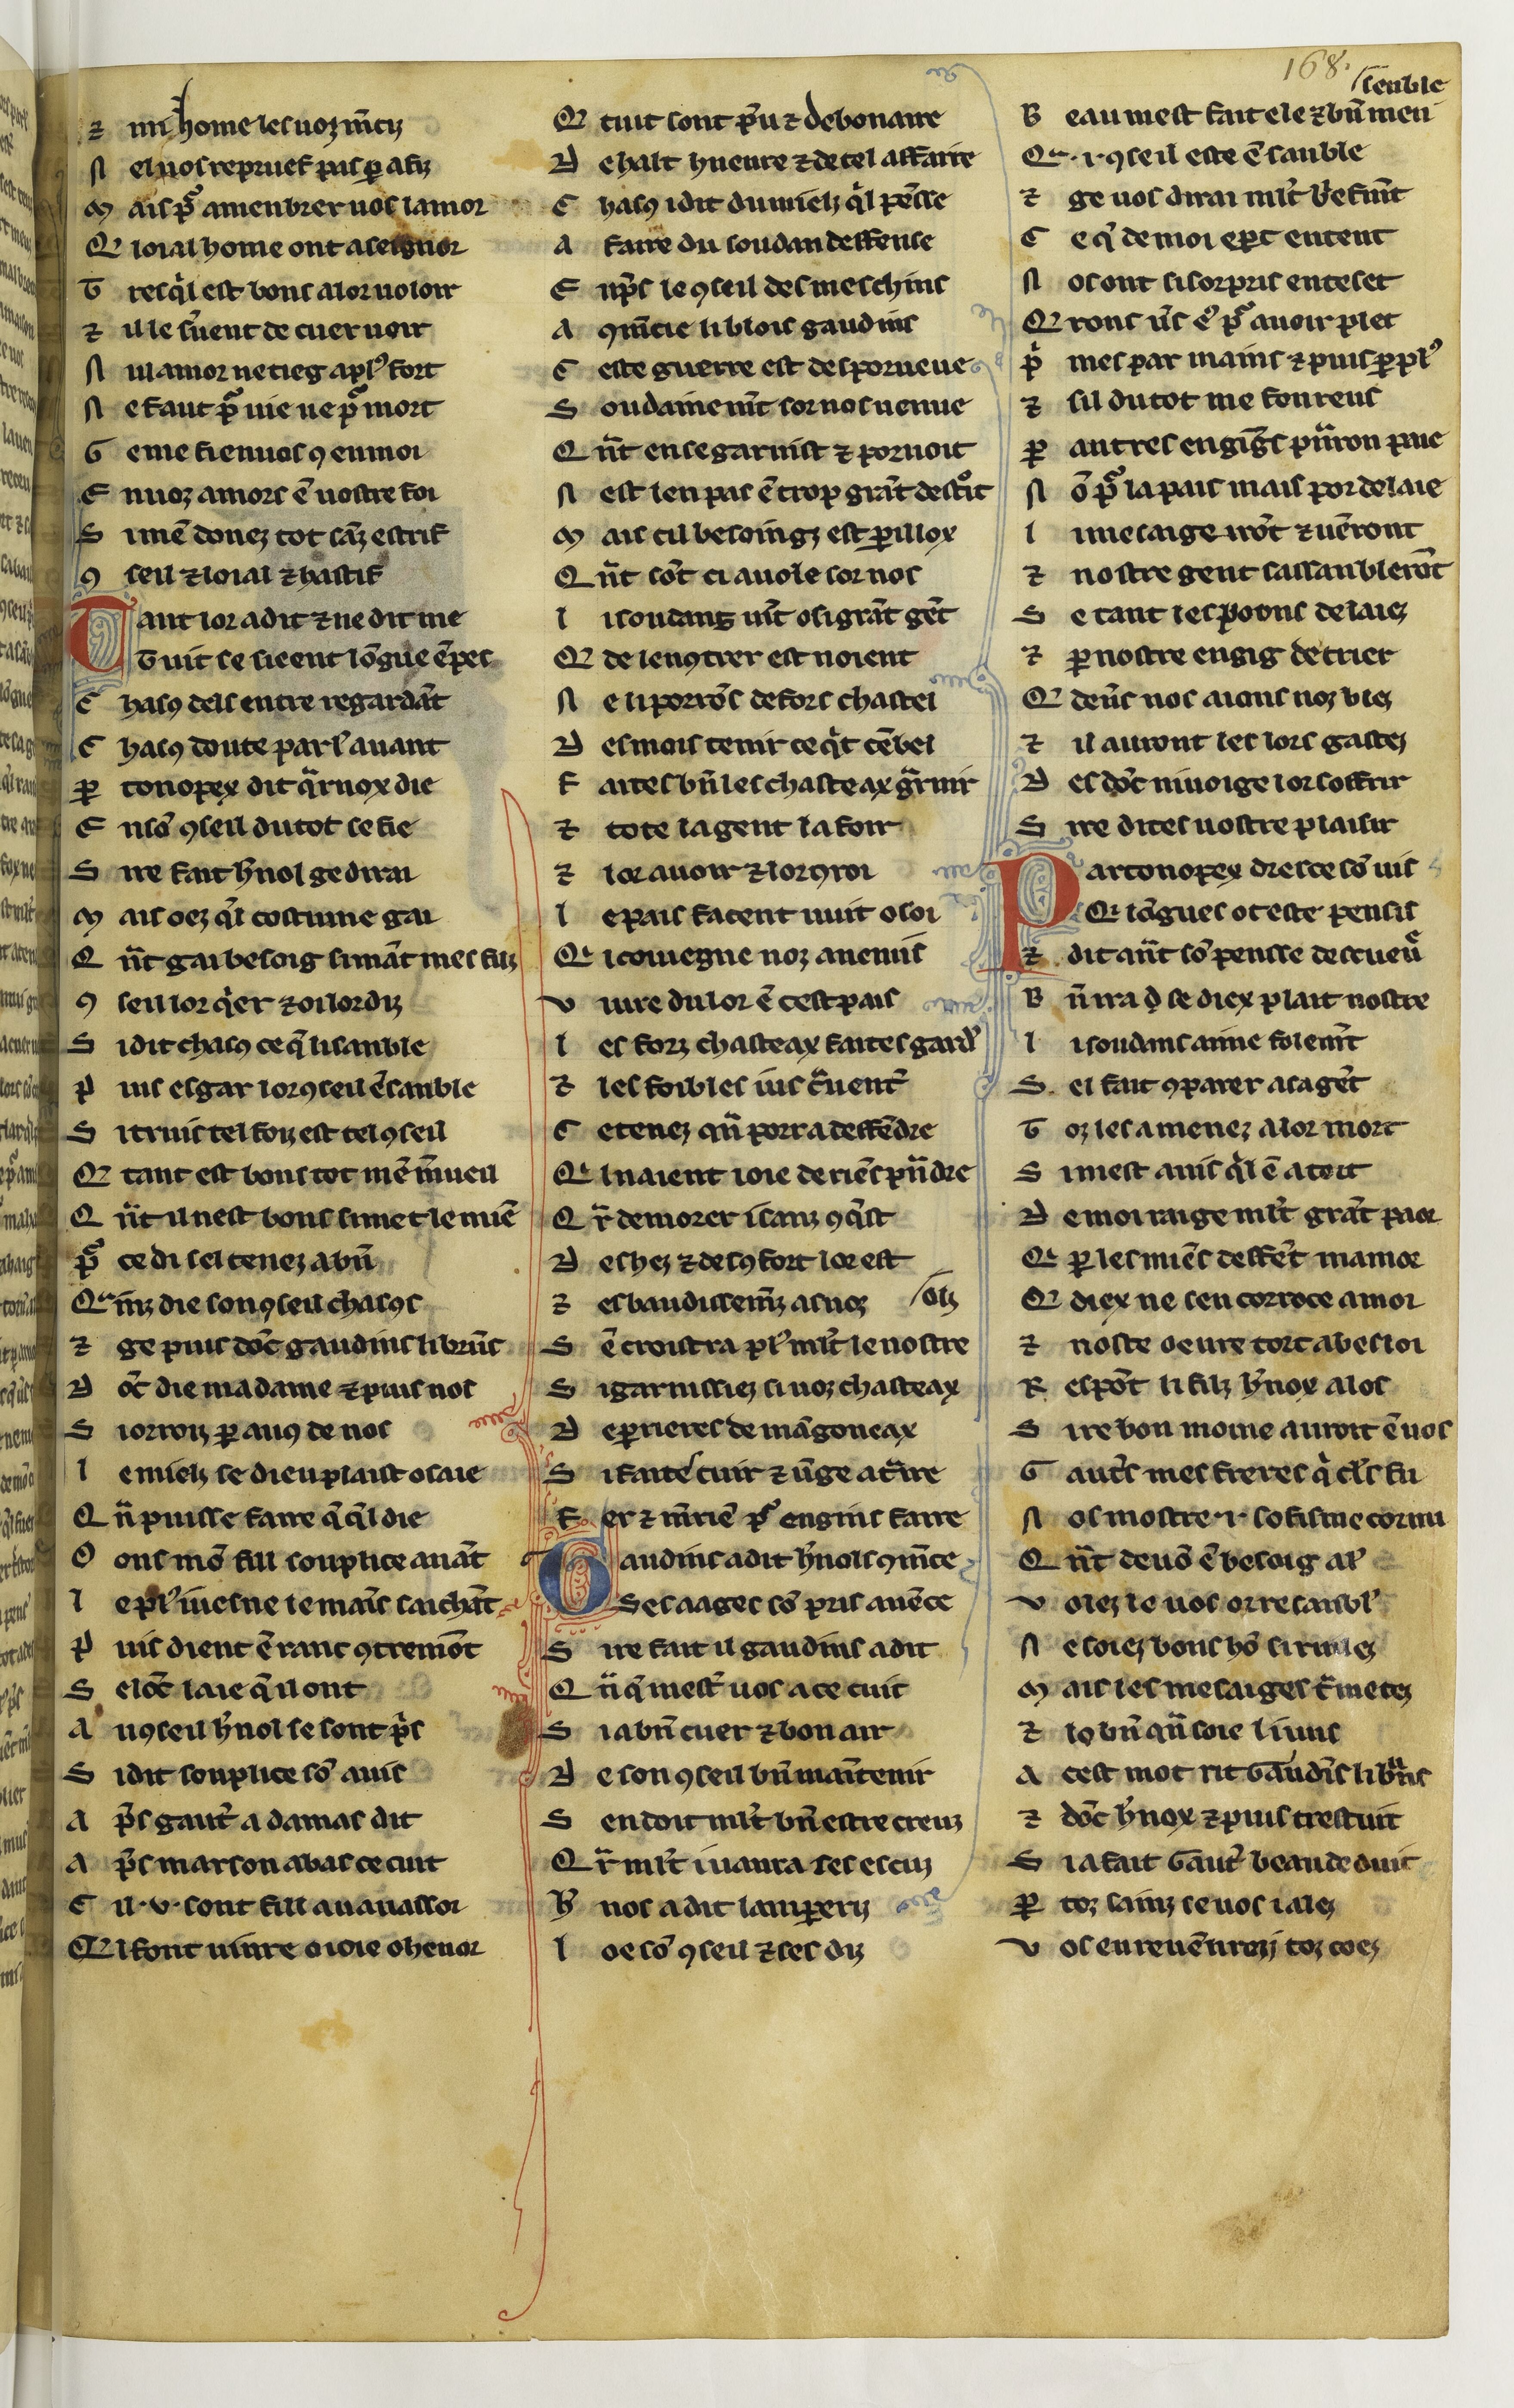 168.
⁊ mi home les uoz m̃ciz
N el uos repruef pas ꝑ afiz
M ais pͬ amenbrer uos lamor
Q̃ loial home ont a seignor
T res q̾l est bons a lor uoloir
⁊ il le s̾uent de cuer uoir
N ul amor ne tieg a plꝰ fort
N e faut pͬ uie ne pͬ mort
G e me fi en uos ꝯ en moi
E n uoz amors ẽ uostre foi
S i mẽ donez tot sãz estrif
ꝯ seil ⁊ loial ⁊ hastif
T ant lor a dit ⁊ ne dit me
T uit se sieent lõgue ẽpes
C hasꝯ dels entre regardãt
C hasꝯ doute parlꝰ auant
P tonopex dit q̃rnox die
E n sõ ꝯseil du tot se fie
S ire fait h̾nol ge dirai
M ais oez q̾l costume gai
Q ñt gai besoig si mãt mes fuiz
ꝯ seil lor q̾er ⁊ oi lor diz
S i dit chasꝯ ce q̃ li sanble
P uis esgar lor ꝯseil ẽsanble
S i truis tel foiz est tel ꝯseil
Q̃ tant est bons tot mẽ m̾ueil
Q ñt il nest bons si met le miẽ
Pͬ ce di sel tenez a bñ
Q̃ miz die son ꝯseil chasꝯs
⁊ ge puis dõc gaudins li brũs
D õc die ma dame ⁊ puis nos
S i orroiz ꝑ auꝯ de nos
L e mielz se dieu plaist o saie
Q ñ puisse faire q̃ q̾l die
O ons mõ fill souplice auãt
L e plꝰ iuesne le mais saichãt
P uis dient ẽ ranc ꝯtremõt
S elõc laie q̃ il ont
A u ꝯseil h̾nol se sont p̾s
S i dit souplice sõ auis
A p̾s gaut̾ adamas dit
A p̾s marson abas ce cuit
C il .v. sont fill au auassor
Q̃l font uiure o ioie o henor
Q̃ tuit sont p̾u ⁊ debonaire
D e halt hueure ⁊ de tel affaire
C hasꝯ i dit du mielz q̾l pẽsse
A faire du soudan deffense
E np̾s le ꝯseil des meschins
A ꝯm̃cie li blois gaudins
C este guerre est desporueue
S oudainem̃t sor nos uenue
Q ñt en se garnist ⁊ poruoit
N est len pas ẽ trop grãt destͦit
M ais cil besoingz est ꝑillox
Q ñt sõt ci auole sor nos
L i soudans uiẽt o si grãt gẽt
Q̃ de lenꝯtrer est noient
N e li porrõs de fors chastel
D es mois tenir ce q̾t cẽbel
F aites bñ les chasteax g̃rnir
⁊ tote la gent la foir
⁊ lor auoir ⁊ lor ꝯroi
L e pais facent uuit o soi
Q̃ i couiegne noz anemis
V iure du lor ẽ cest pais
L es forz chasteax faites gardꝰ
⁊ les foibles ius c̾uent̾
C e tenez qñ porra deffẽdre
Q̃l naient ioie de riẽs pñdre
Q r̃ demorer i sanz ꝯq̾st
D eshez ⁊ desꝯfort lor est
⁊ esbaudissem̃z as noz
S ẽ croistra plꝰ ml̃t le nostre
S i garnissiez si uoz chasteax
D e ꝑrieres de mãgoneax
S i faites cuir ⁊ ũge at̾ire
F er ⁊ m̃riẽ pͬ engins faire
G audins a dit h̾nols ꝯm̃ce
S es aages sõ pris auẽce
S ire fait il gaudins a dit
Q ñ q̾ mest̾ uos a ce cuit
S i a bñ cuer ⁊ bon air
D e son ꝯseil bñ maĩtenir
S en doit ml̃t bñ estre creuz
Q r̃ ml̃t i uaura ses escuz
H̾ nos a dit lampeeriz
L oe sõ ꝯseil ⁊ ses diz
senble
B eau mest fait ele ⁊ bñ men
Q̃ .i. ꝯseil este ẽ sanble
⁊ ge uos dirai ml̃t b̾efm̃t
C e q̾ de moi ep̾t entent
N os ont si sorpris en tel set
Q̃ rons ũs eͤ pͬ auoir plet
P̾ mes par mains ⁊ puis ꝑ plꝰ
⁊ sil du tot me fonreus
P autres engig̃s pñron paie
N õ pͬ la pais mais por delaie
L i mesaige irõt ⁊ uẽront
⁊ nostre gent sassanblerõt
S e tant les poons delaier
⁊ ꝑ nostre engig detrier
Q̃ deũs nos aions noz blez
⁊ il auront les lors gastez
D es dõc ni uoi ge lor soffrir
S ire dites uostre plaisir
P artonopex dresce sõ uis
Q̃ lõgues ot este pensis
⁊ dit añt sõ pensse descueũͤ
B ñ ira ꝗ se diex plait nostre
L i soudans aime folem̃t
S el fait ꝯparer a sa gẽt
T oz les amenez a lor mort
S i mest auis q̾l ẽ a tort
D e moi rai ge ml̃t grãt paor
Q̃ ꝑ les miẽs deffẽt mamor
Q̃ diex ne sen corroce a moi
⁊ noste oeure tort a besloi
R espõt li filz h̾nox alos
S ire bon moine auroit ẽ uos
G aut̾s mes freres q̾ cl̾s fu
N os mostre .i. sofisme cornu
Q ñt deuõ ẽ besoig alꝰ
V olez le uos or resanblꝰ
N e soiez bons hõ si rimlez
M ais les mesaiges t̾metez
⁊ lo bñ qñ soie li uns
A cest mot rit Gaudĩs li br̃us
⁊ dõc h̾nox ⁊ puis trestuit
S i a fait Gaut̾ beau deduit
P toz sainz se uos i alez
V os en reuẽnroiz toz coez